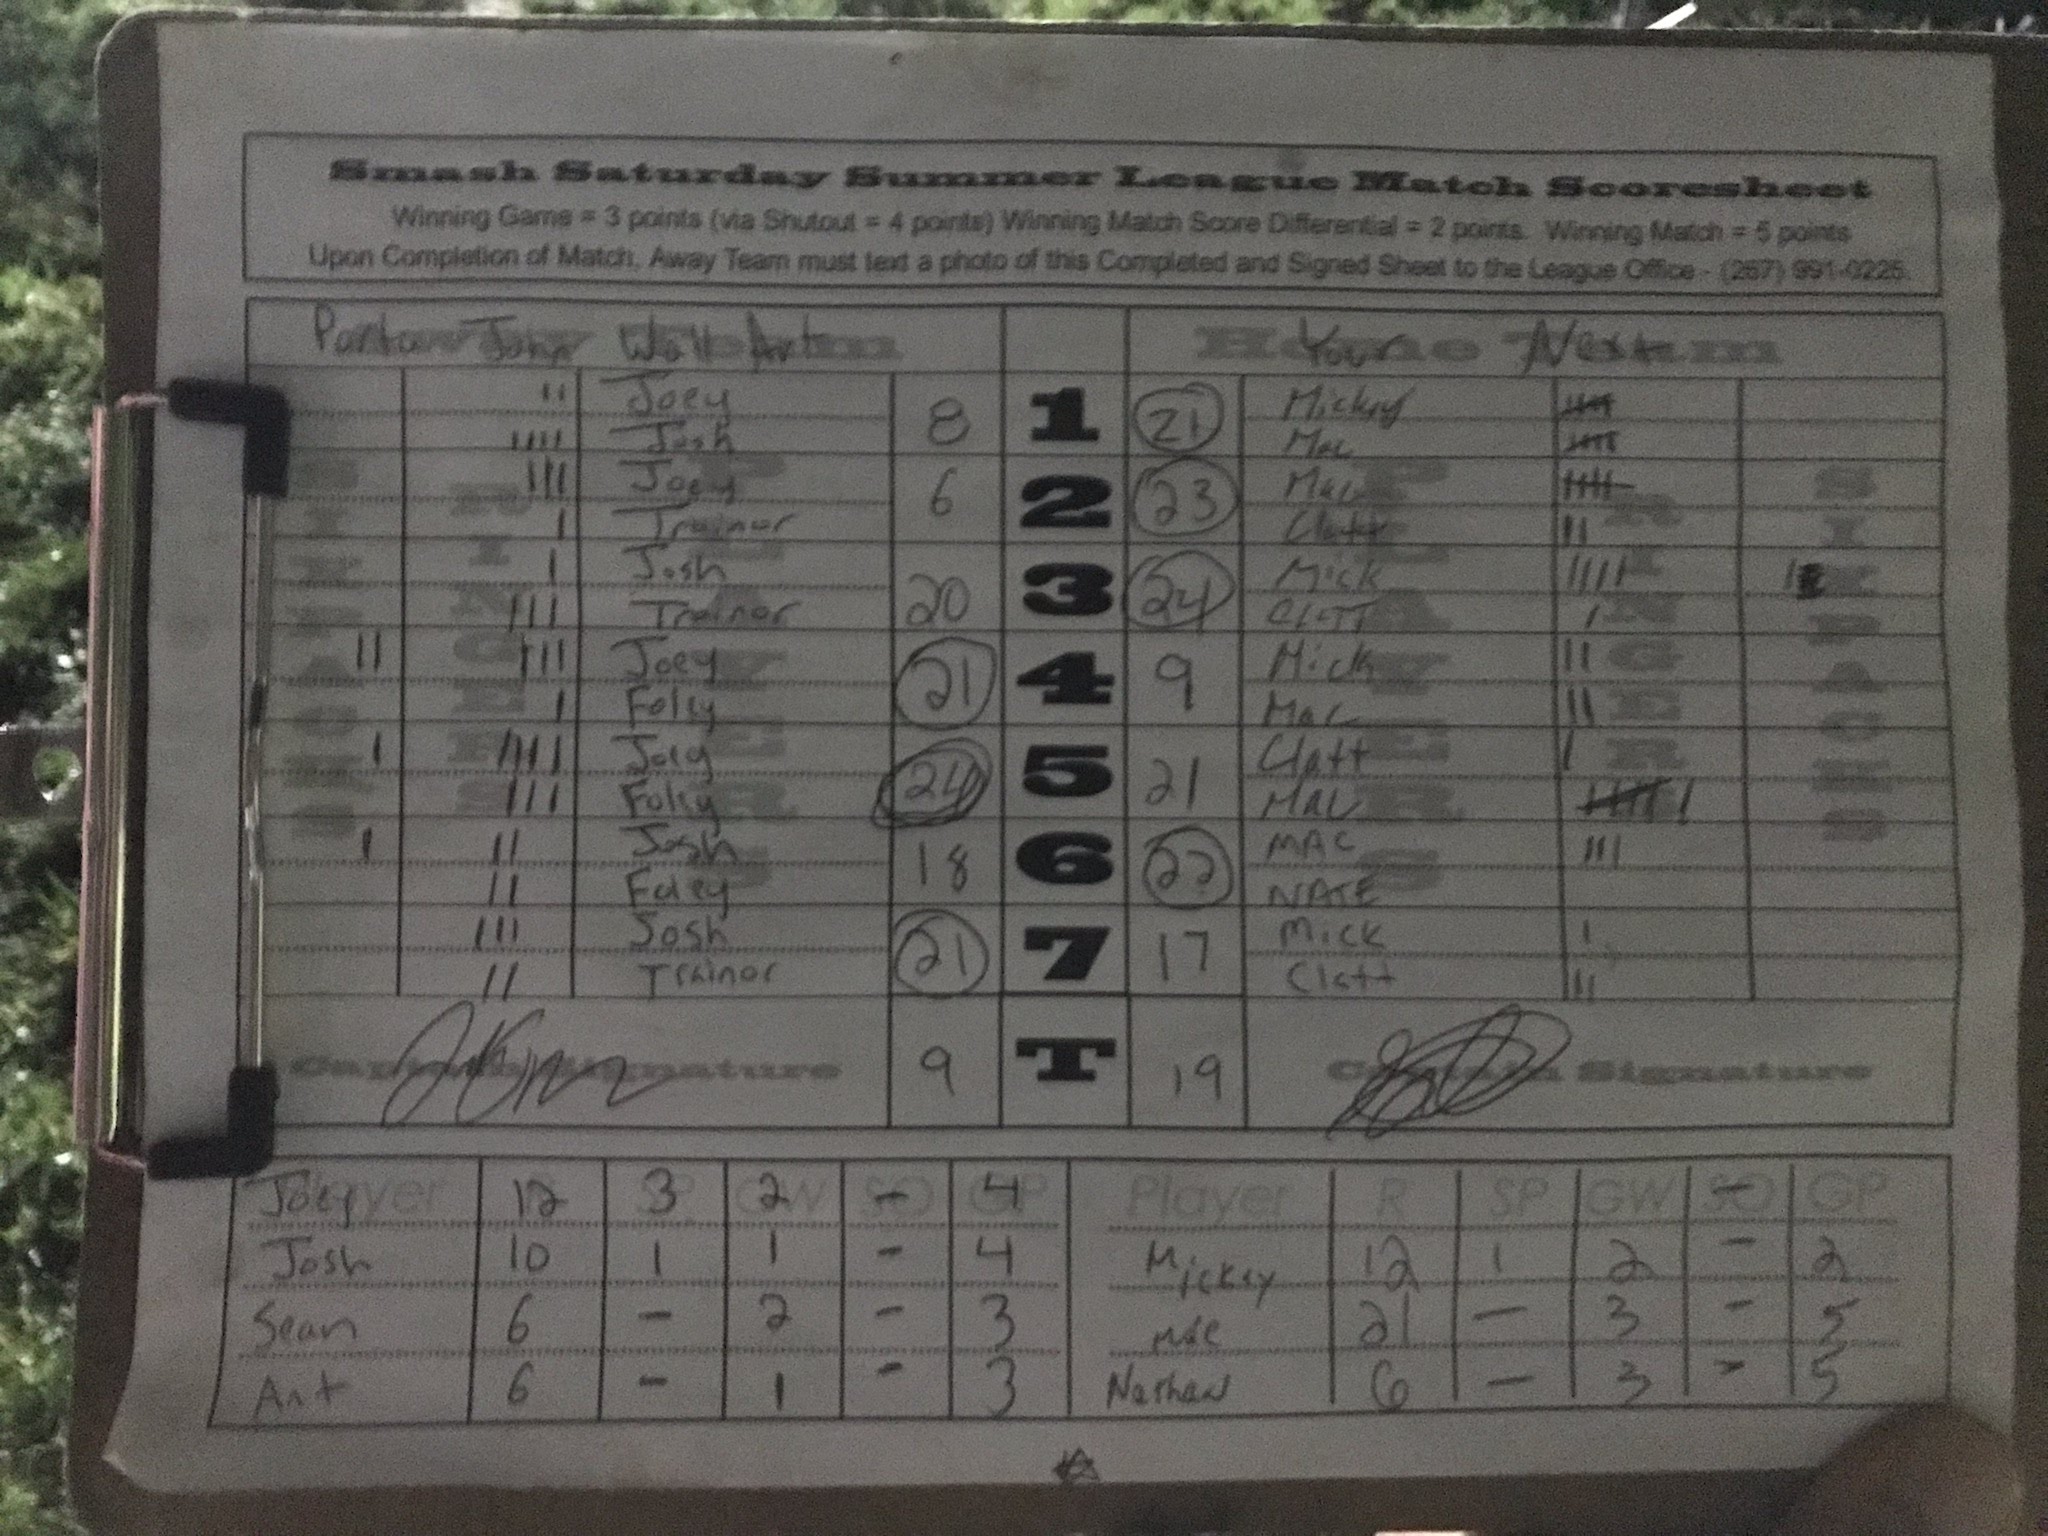 Smash Saturday Summer League Match Scoresheet
Winning Game = 3 points (via Shutout = 4 points) Winning Match Score Differential = 2 points. Winning Match = 5 points
Upon Completion of Match, Away Team must text a photo of this Completed and Signed Sheet to the League Office - (267) 991-0225.
John Wall Art Home Team Your Next
Joey 8 1 21 Mickey
Josh Mac
Joey 6 2 23 Mac
Trainor Clatt
Josh 20 3 24 Mick
Trainor Clatt
Joey 21 4 9 Mick
Foley Mac
Joey 24 5 21 Clatt
Foley Mac
Josh 18 6 22 MAC
Foley NATE
Josh 21 7 17 Mick
Trainor Clatt
SIXPACKS RINGERS PLAYERS PLAYERS RINGERS SIXPACKS
Captain Signature 9 T 19 Captain Signature
Player R SP GW SO GP Player R SP GW SO GP
Joey 12 3 2 - 4 -
Josh 10 1 1 - 4 Mickey 12 1 2 - 2
Sean 6 - 2 - 3 Mac 21 - 3 - 5
Ant 6 - 1 - 3 Nathan 6 - 3 - 5